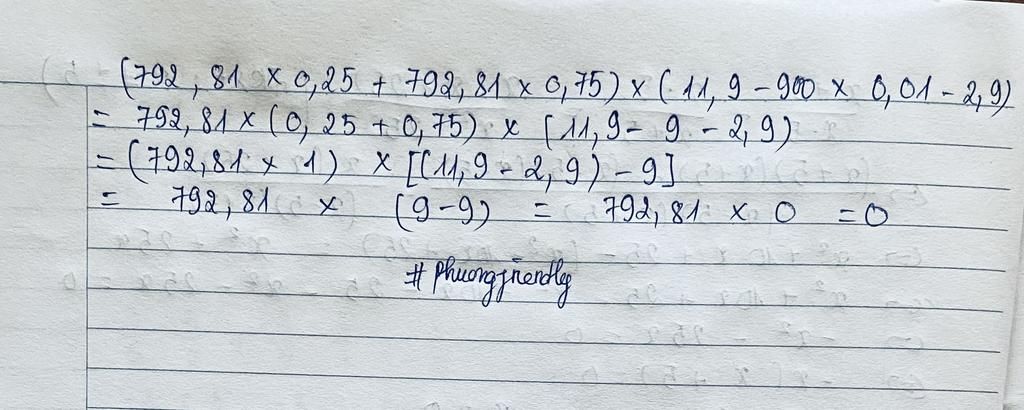 (792,81 × 0,25 + 792,81 × 0,75) × (11,9 - 900 × 0,01 - 2,9)
= 792,81 × (0,25 + 0,75) × (11,9 - 9 - 2,9)
= (792,81 × 1) × [(11,9 - 2,9) - 9]
= 792,81 × (9-9) = 792,81 × 0 = 0
# Phuongfriendly